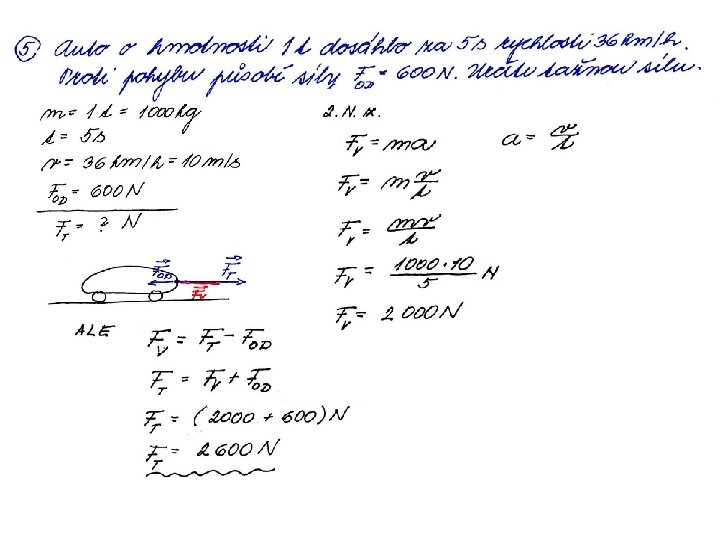 5. Auto o hmotnosti 1t dosáhlo za 5s rychlosti 36 km/h.
Proti pohybu působí síly F_OD = 600N. Určete tažnou sílu.
m = 1t = 1000kg
t = 5s
v = 36 km/h = 10 m/s
F_OD = 600N
F_T = ? N
2. N. z.
F_V = ma
a = v/t
F_V = m v/t
F_V = mv/t
F_V = 1000·10/5 N
F_V = 2 000N
F_OD F_T
F_V
ALE
F_V = F_T - F_OD
F_T = F_V + F_OD
F_T = (2000 + 600)N
F_T = 2 600N